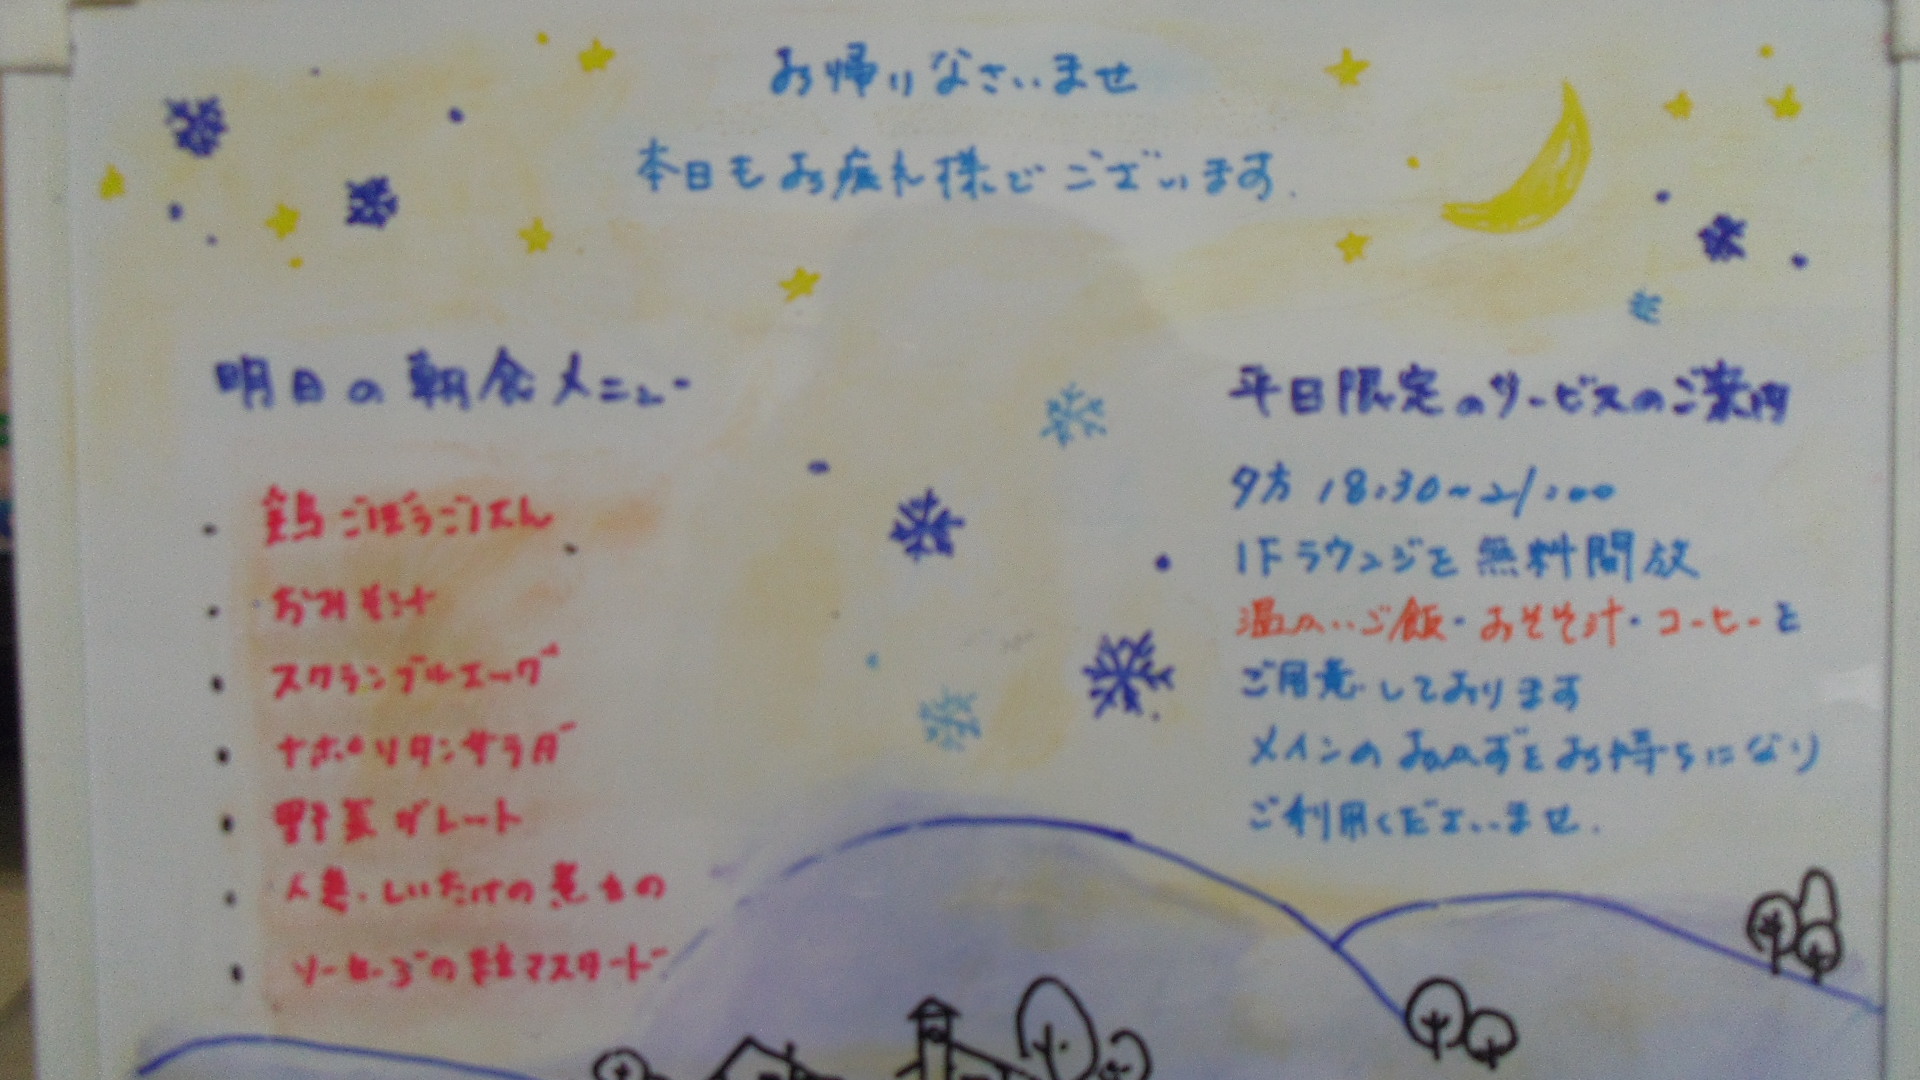 お帰りなさいませ
本日もお疲れ様でございます.
明日の朝食メニュー
・鶏ごぼうごはん
・おみそ汁
・スクランブルエッグ
・ナポリタンサラダ
・野菜グレート
・人参・しいたけの煮もの
・ソーセージの粒マスタード
平日限定のサービスのご案内
夕方 18:30~21:00
1Fラウンジを無料開放
温かいご飯・おそそ汁・コーヒーと
ご用意しております
メインのおかずをお持ちになり
ご利用くださいませ.